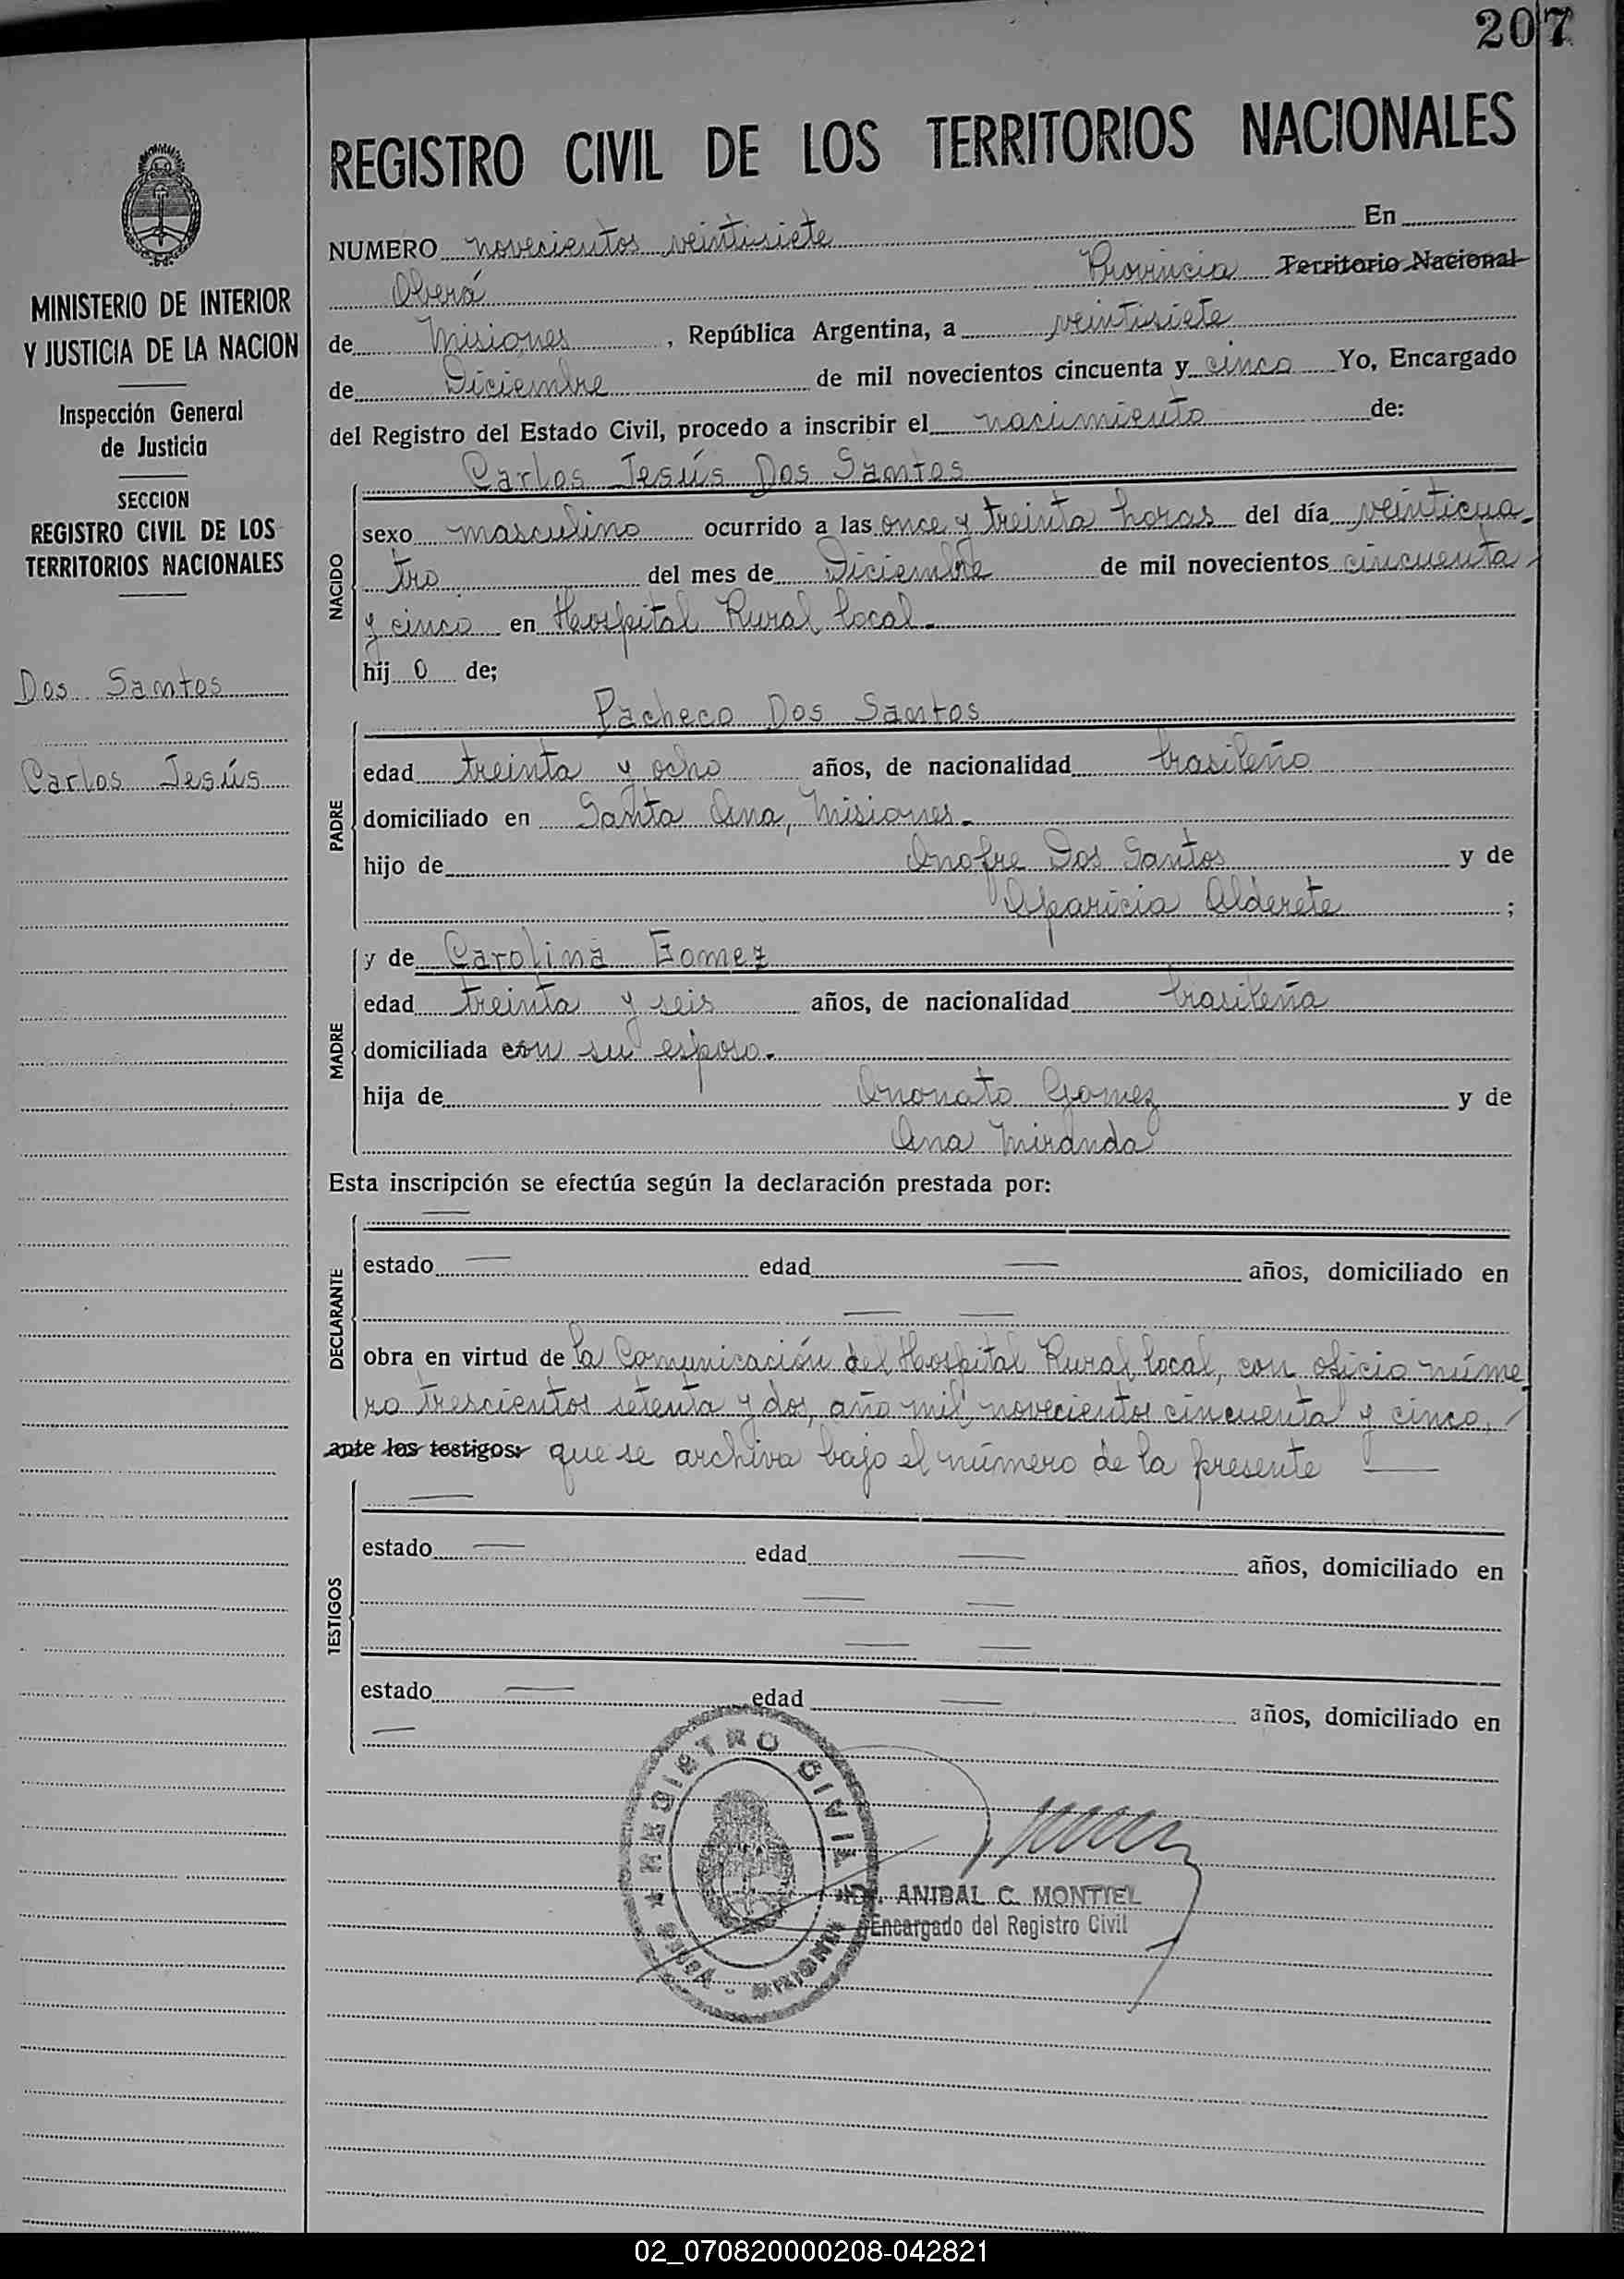 207
REGISTRO CIVIL DE LOS TERRITORIOS NACIONALES
MINISTERIO DE INTERIOR
Y JUSTICIA DE LA NACION
Inspección General
de Justicia
SECCION
REGISTRO CIVIL DE LOS
TERRITORIOS NACIONALES
Dos Santos
Carlos Jesús
NUMERO novecientos veintisiete En
Oberá Provincia Territorio Nacional
de Misiones, República Argentina, a veintisiete
de Diciembre de mil novecientos cincuenta y cinco Yo, Encargado
del Registro del Estado Civil, procedo a inscribir el nacimiento de:
Carlos Jesús Dos Santos
NACIDO
sexo masculino ocurrido a las once y treinta horas del día veinticua-
tro del mes de Diciembre de mil novecientos cincuenta
y cinco en Hospital Rural local.
hij o de;
Pacheco Dos Santos
PADRE
edad treinta y ocho años, de nacionalidad brasileño
domiciliado en Santa Ana, Misiones.
hijo de Onofre Dos Santos y de
Aparicia Alderete ;
y de Carolina Gomez
MADRE
edad treinta y seis años, de nacionalidad brasileña
domiciliada con su esposo.
hija de Gomez y de
Ana Miranda
Esta inscripción se efectúa según la declaración prestada por:
DECLARANTE
estado edad años, domiciliado en
obra en virtud de la Comunicación del Hospital Rural local, con oficio núme
ro trescientos setenta y dos, año mil novecientos cincuenta y cinco,
ante los testigos: que se archiva bajo el número de la presente
TESTIGOS
estado edad años, domiciliado en
estado edad años, domiciliado en
REGISTRO CIVIL
OBERÁ - MISIONES
ANIBAL C. MONTIEL
Encargado del Registro Civil
02_070820000208-042821